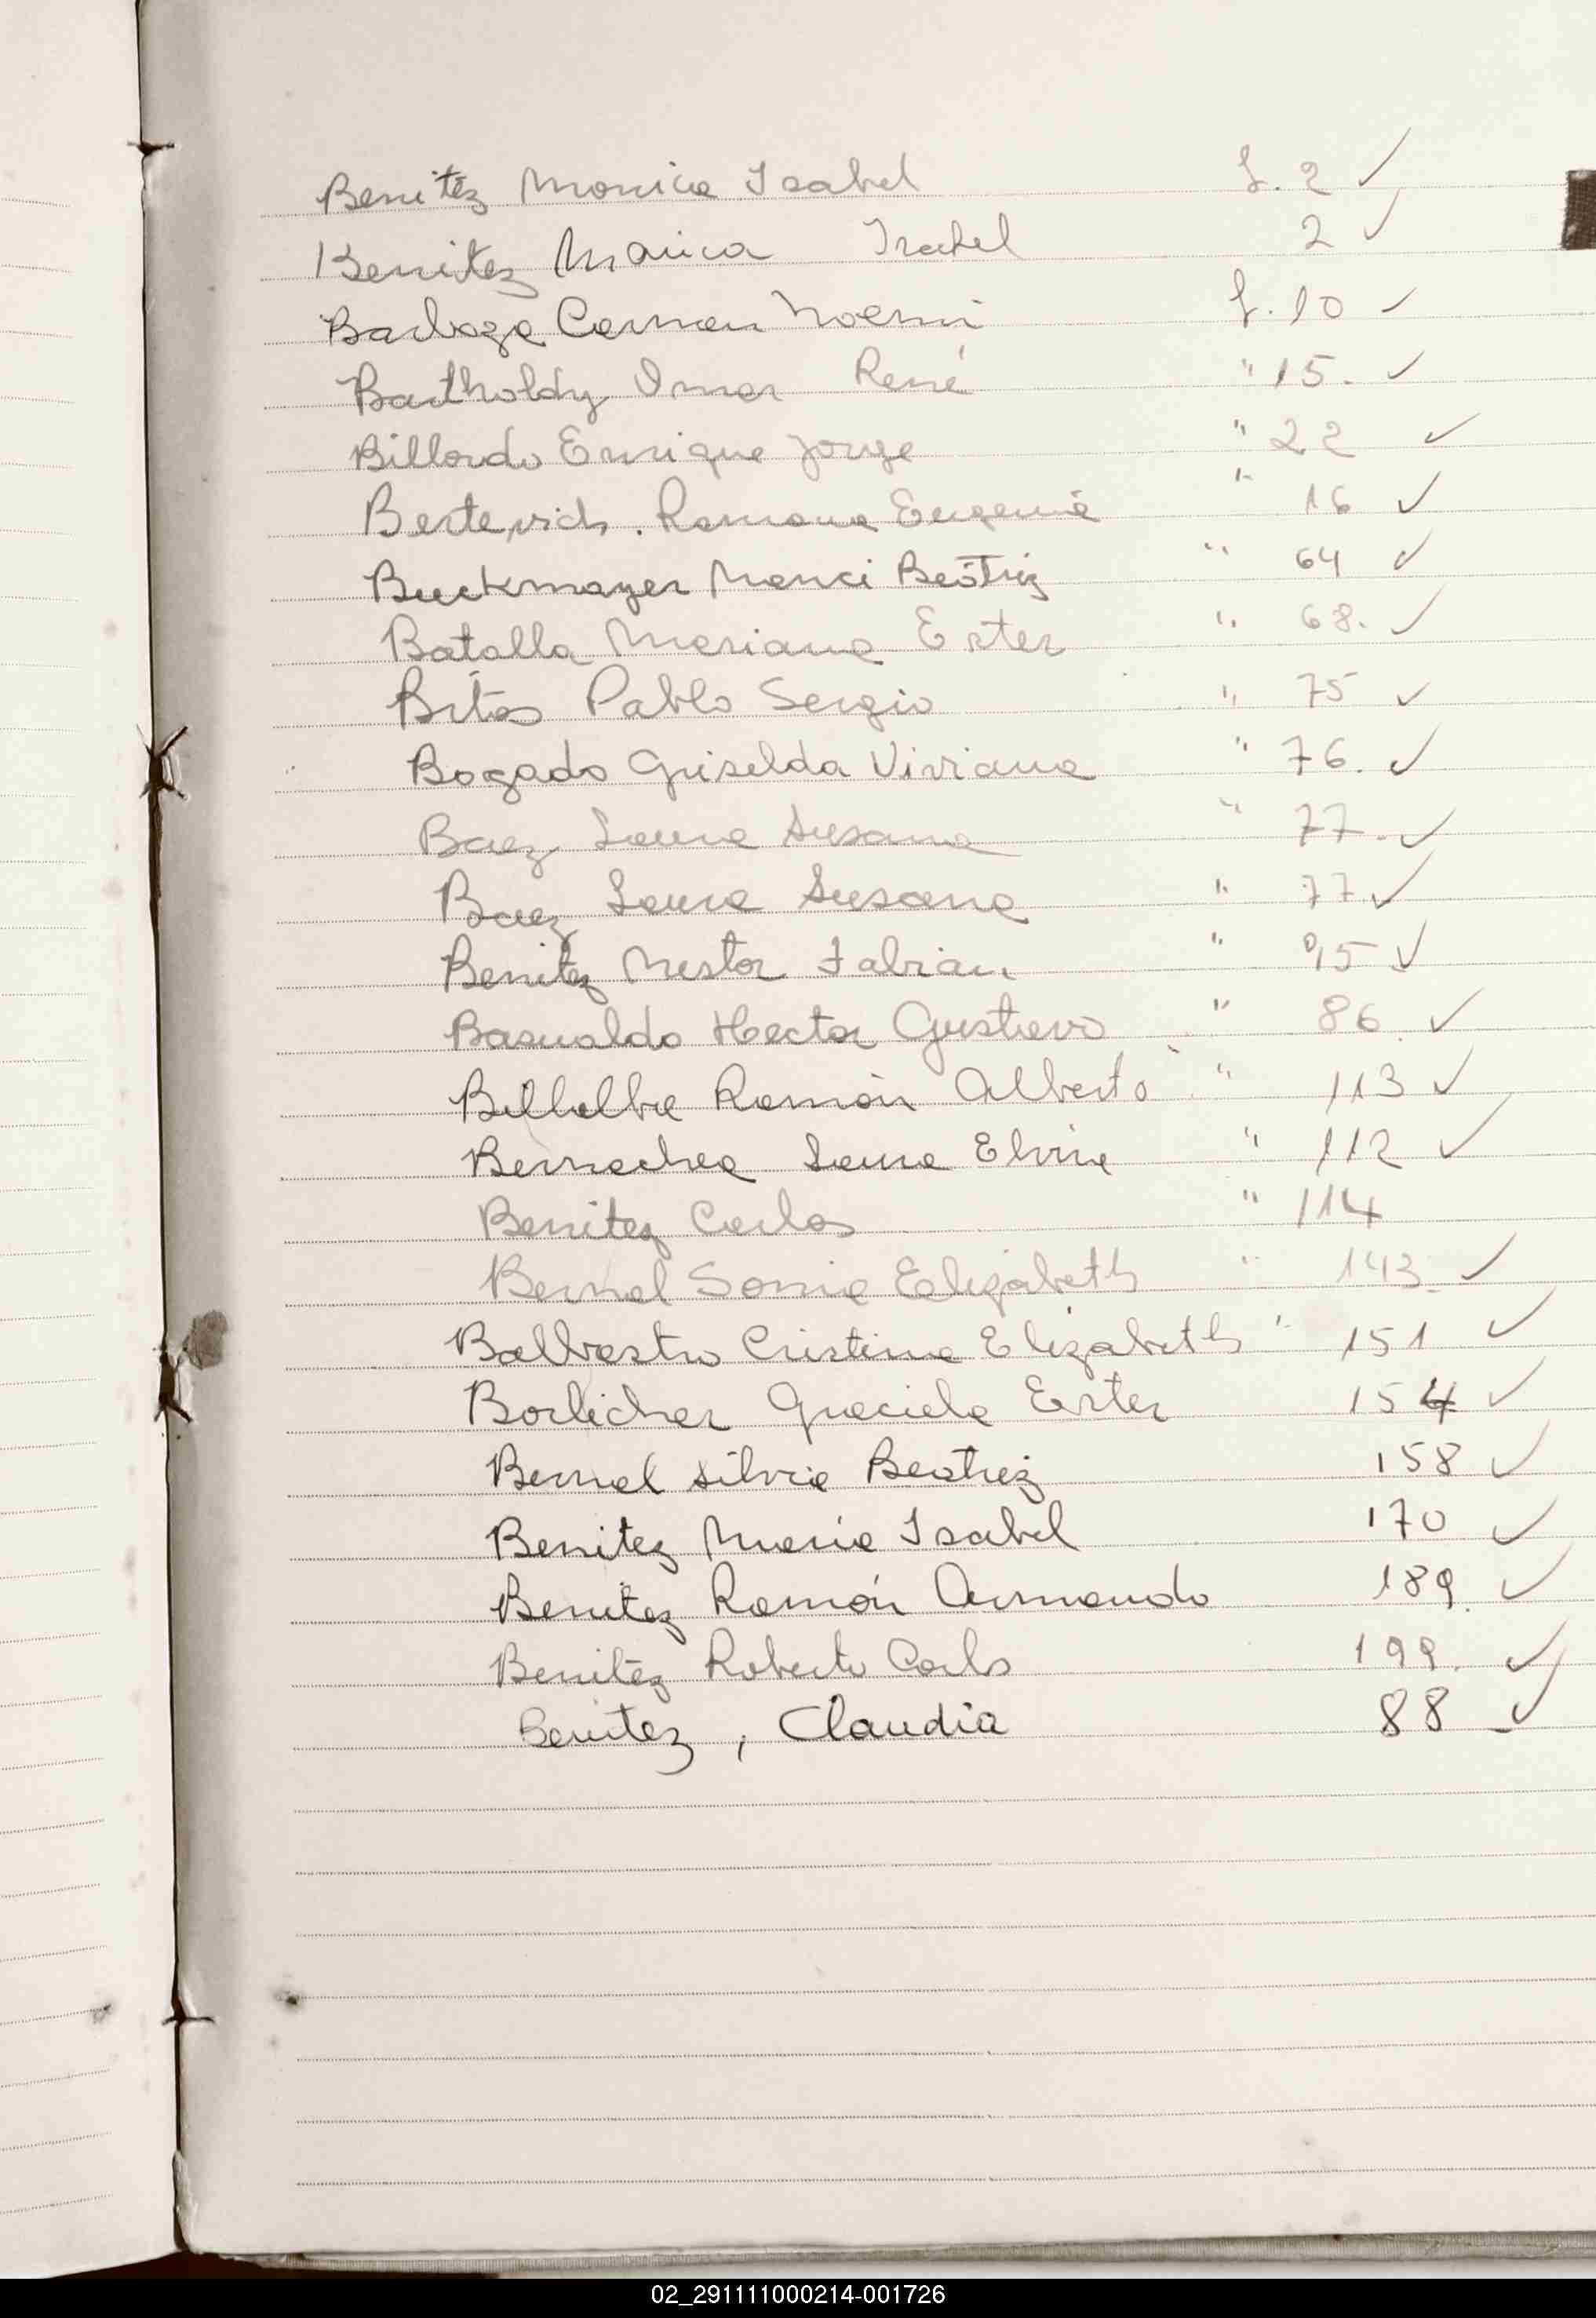 Benitez Monica Isabel f. 2 ✓
Benitez Monica Isabel 2 ✓
Barboza Carmen Noemi f. 10 ✓
Bartholdy Omar René " 15. ✓
Billordo Enrique Jorge " 22 ✓
Bertevich. Ramona Eugenia " 16 ✓
Buckmayer Nanci Beatriz " 64 ✓
Batalla Mariana Ester " 68. ✓
Pablo Sergio " 75 ✓
Bogado Griselda Viviana " 76. ✓
Baez Laura Susana " 77. ✓
Baez Laura Susana " 77 ✓
Benitez Nestor Fabian " ✓
Basualdo Hector Gustavo " 86 ✓
Billalba Ramón Alberto " 113 ✓
Bernachea Laura Elvira " 112 ✓
Benitez Carlos " 114
Bernal Sonia Elizabeth " 143 ✓
Balbastro Cristina Elizabeth " 151 ✓
Borlicher Graciela Ester 154 ✓
Bernal Silvia Beatriz 158 ✓
Benitez Maria Isabel 170 ✓
Benitez Ramón Armando 189. ✓
Benitez Roberto Carlos 199. ✓
Benitez, Claudia 88 ✓
02_291111000214-001726